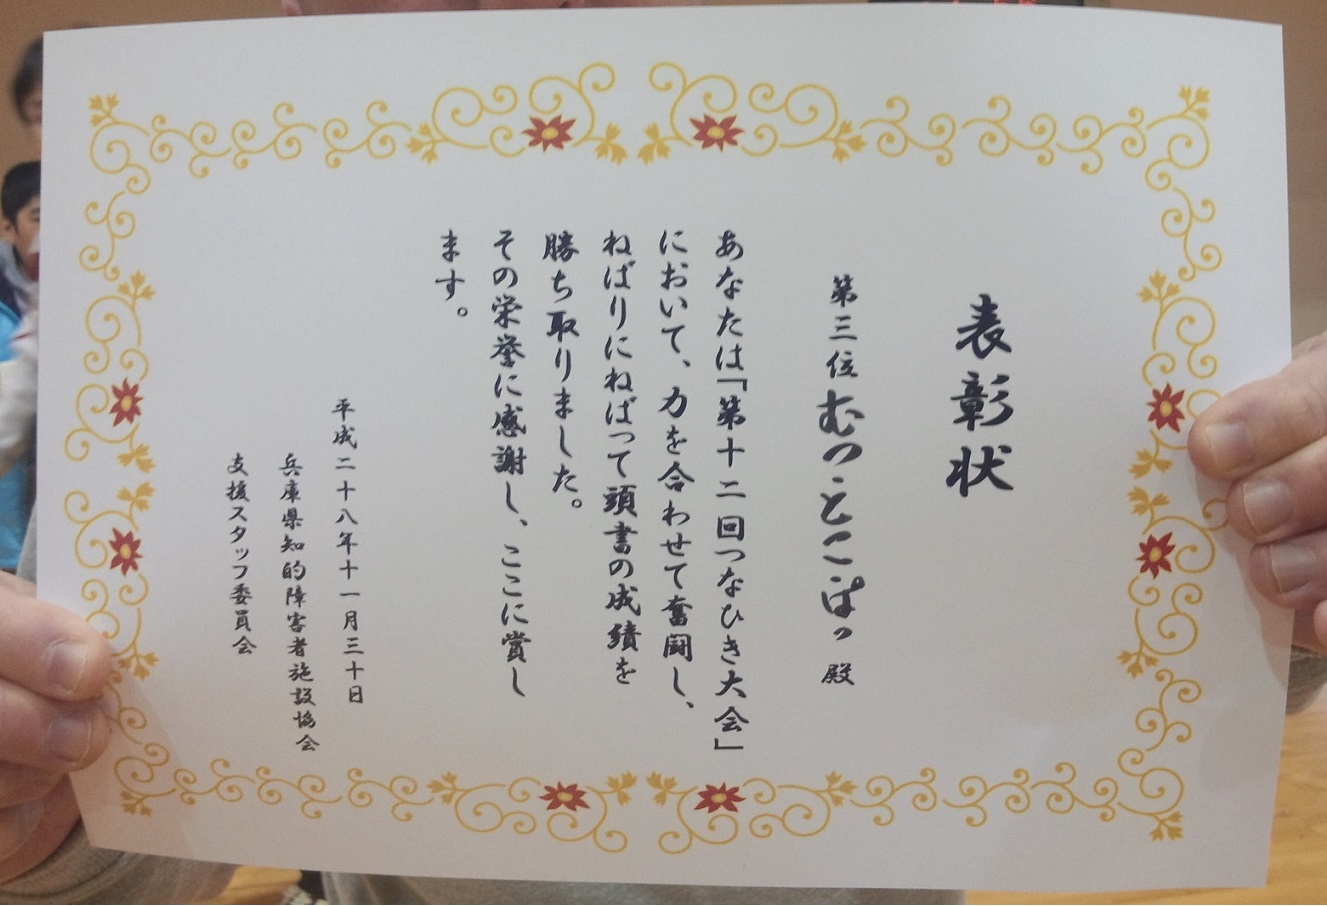 表彰状
第三位 むつとこぱっ 殿
あなたは「第十二回つなひき大会」
において、力を合わせて奮闘し、
ねばりにねばって頭書の成績を
勝ち取りました。
その栄誉に感謝し、ここに賞し
ます。
平成二十八年十一月三十日
兵庫県知的障害者施設協会
支援スタッフ委員会